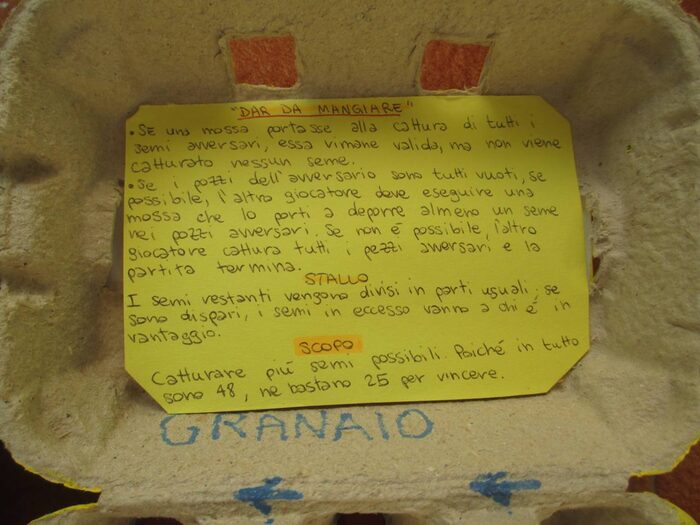 "DAR DA MANGIARE"
• SE una mossa portasse alla cattura di tutti i
semi avversari, essa rimane valida, ma non viene
catturato nessun seme.
• Se i pozzi dell'avversario sono tutti vuoti, se
possibile, l'altro giocatore deve eseguire una
mossa che lo porti a deporre almeno un seme
nei pozzi avversari. Se non é possibile, l'altro
giocatore cattura tutti i pezzi avversari e la
partita termina.
STALLO
I semi restanti vengono divisi in parti uguali: se
sono dispari, i semi in eccesso vanno a chi é in
vantaggio.
SCOPO
Catturare piú semi possibili. Poiché in tutto
sono 48, ne bastano 25 per vincere.
GRANAIO